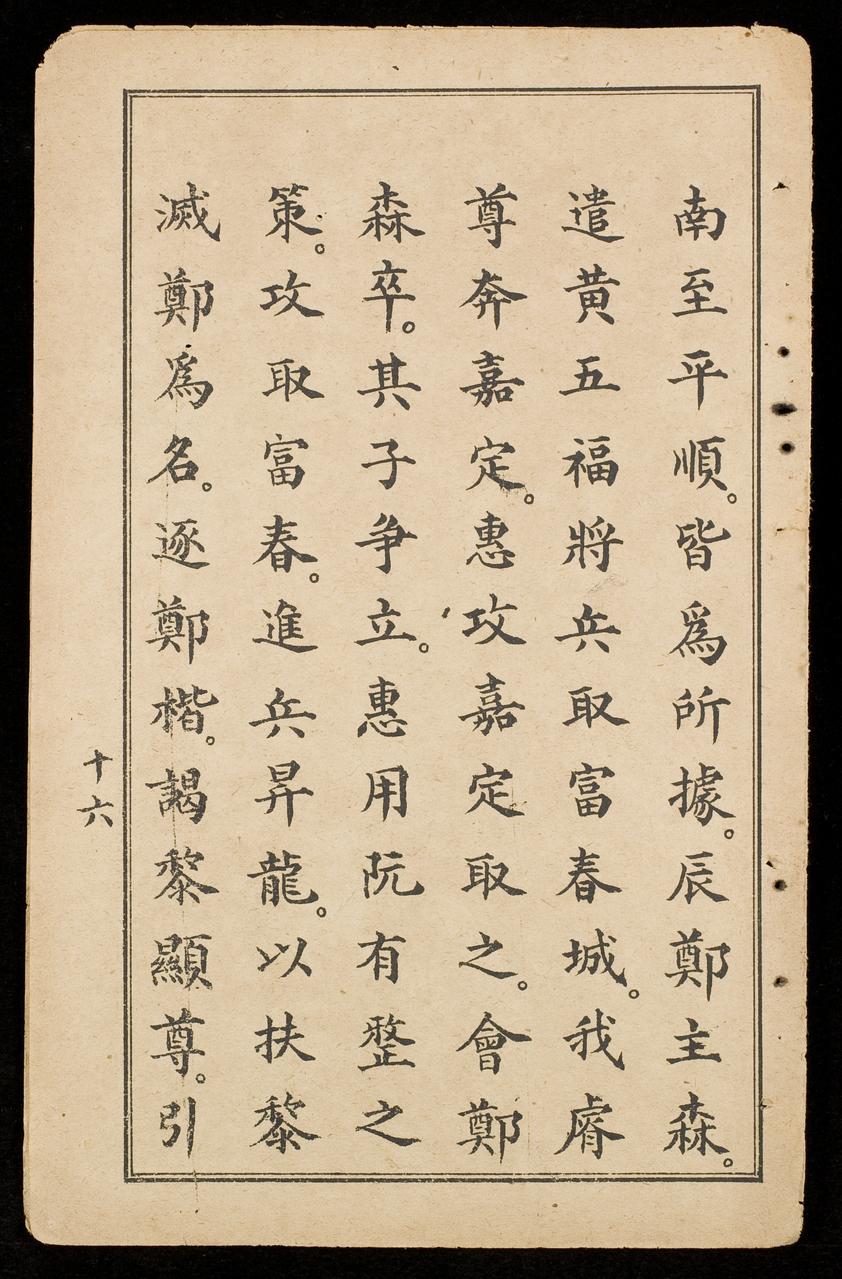 南至平順。皆爲所據。辰鄭主森。
遣黄五福將兵取富春城。我睿
尊奔嘉定。惠攻嘉定取之。會鄭
森卒。其子争立。惠用阮有整之
策。攻取富春。進兵昇龍。以扶黎
滅鄭爲名。逐鄭楷。謁黎顯尊。引
十六